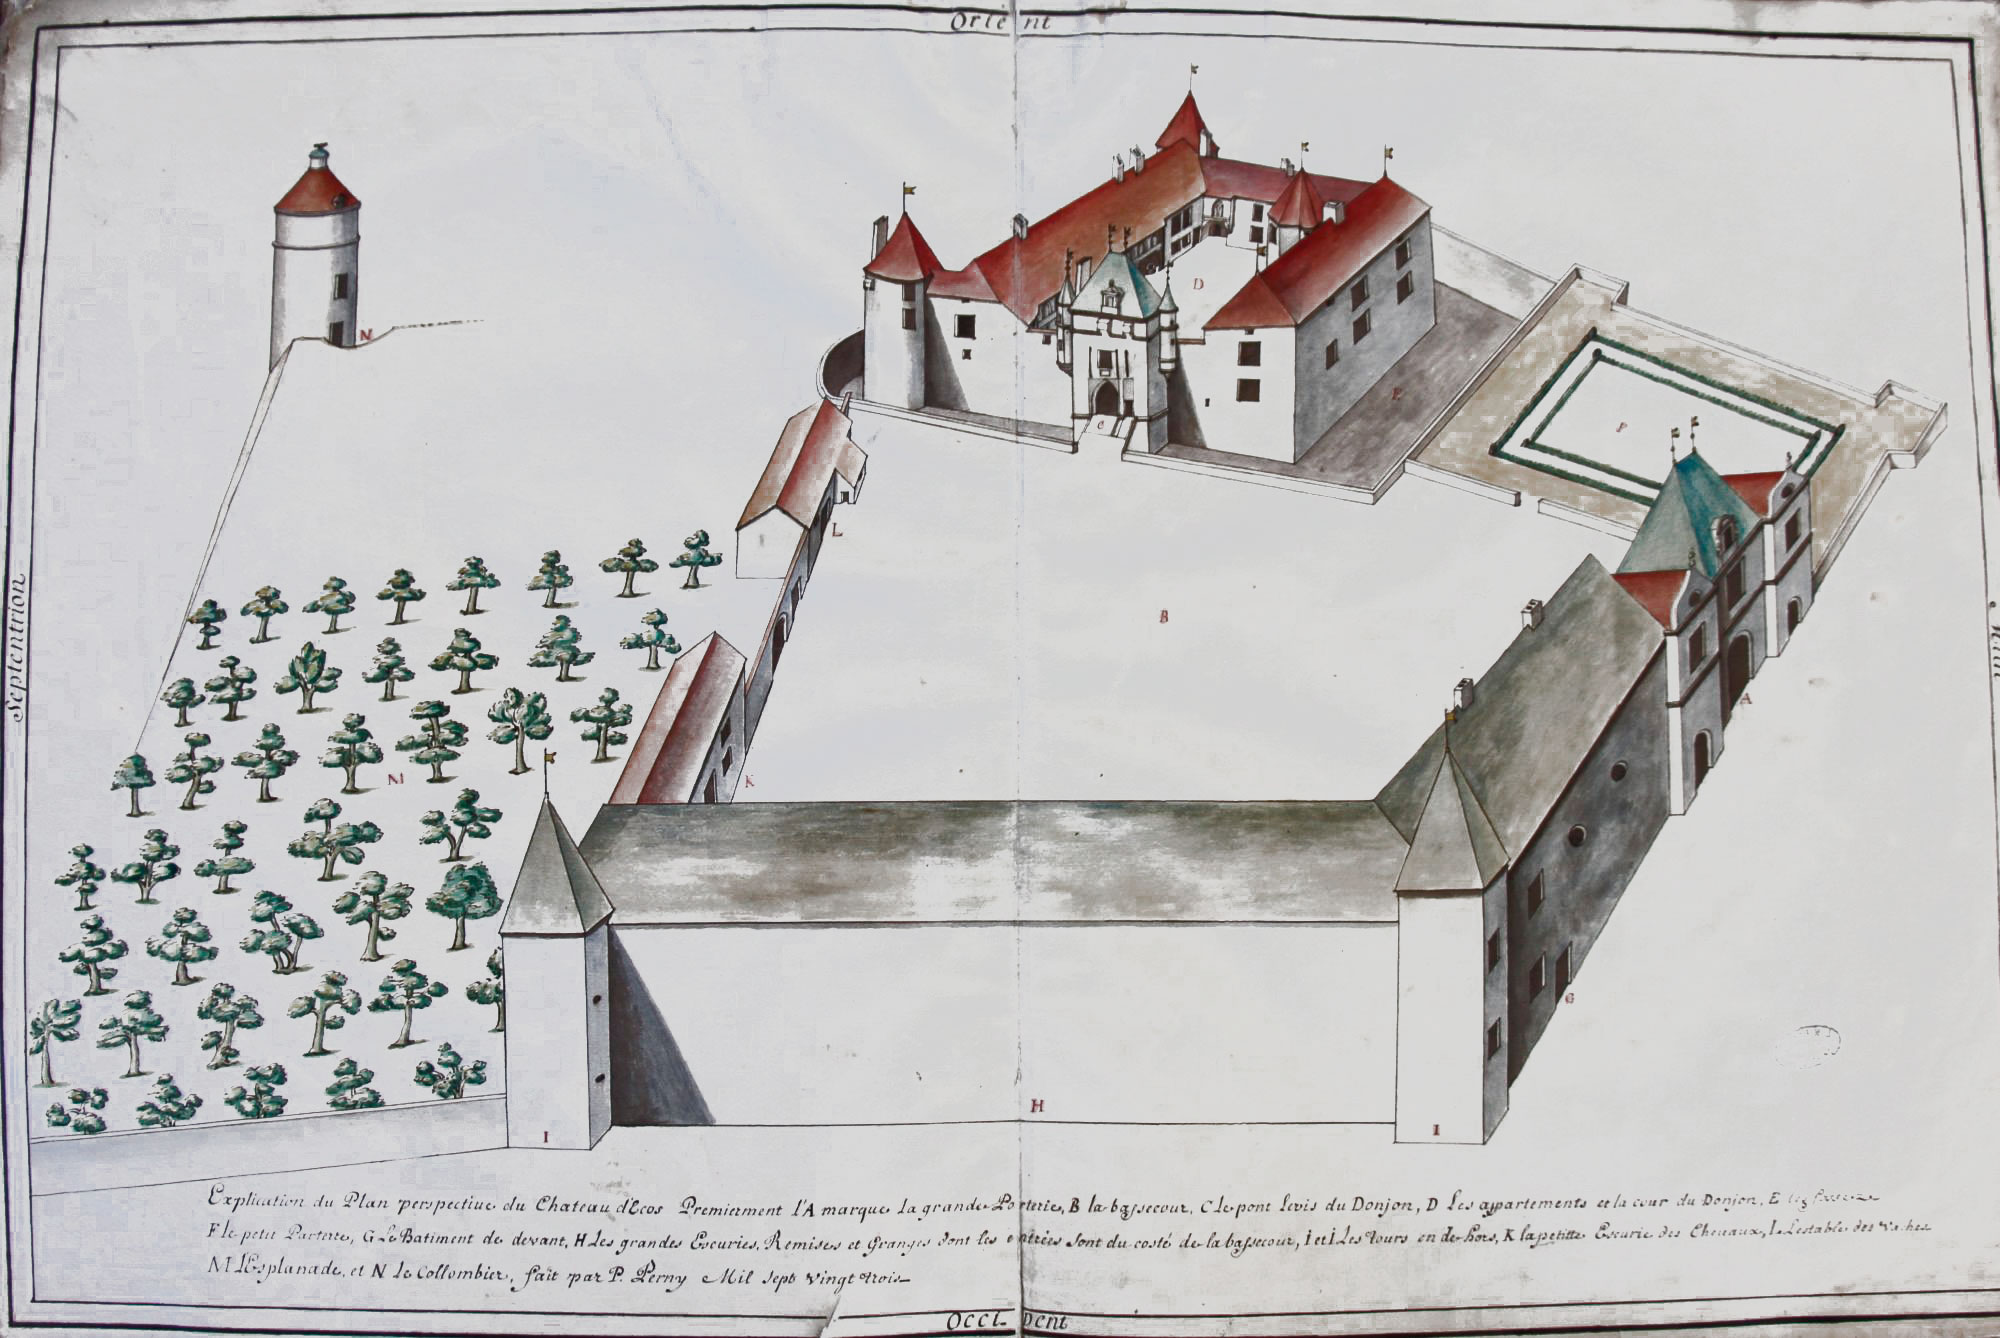 Orient
Septentrion
N
D
E
C
P
L
B
A
M
K
G
H
I
I
Explication du Plan perspective du Chateau d'Ecos Premierment l'A marque la grande Porterie, B la bassecour, C le pont levis du Donjon, D Les appartements et la cour du Donjon, E
F le petit Parterre, G Le Batiment de devant, H Les grandes Escuries, Remises et Granges dont les entrées sont du costé de la bassecour, I et I Les Tours en dehors, K la petitte Escurie des Chevaux, L Lestable des Vaches
M L'Esplanade, et N Le Collombier, fait par P. Perny Mil sept vingt trois
Occident